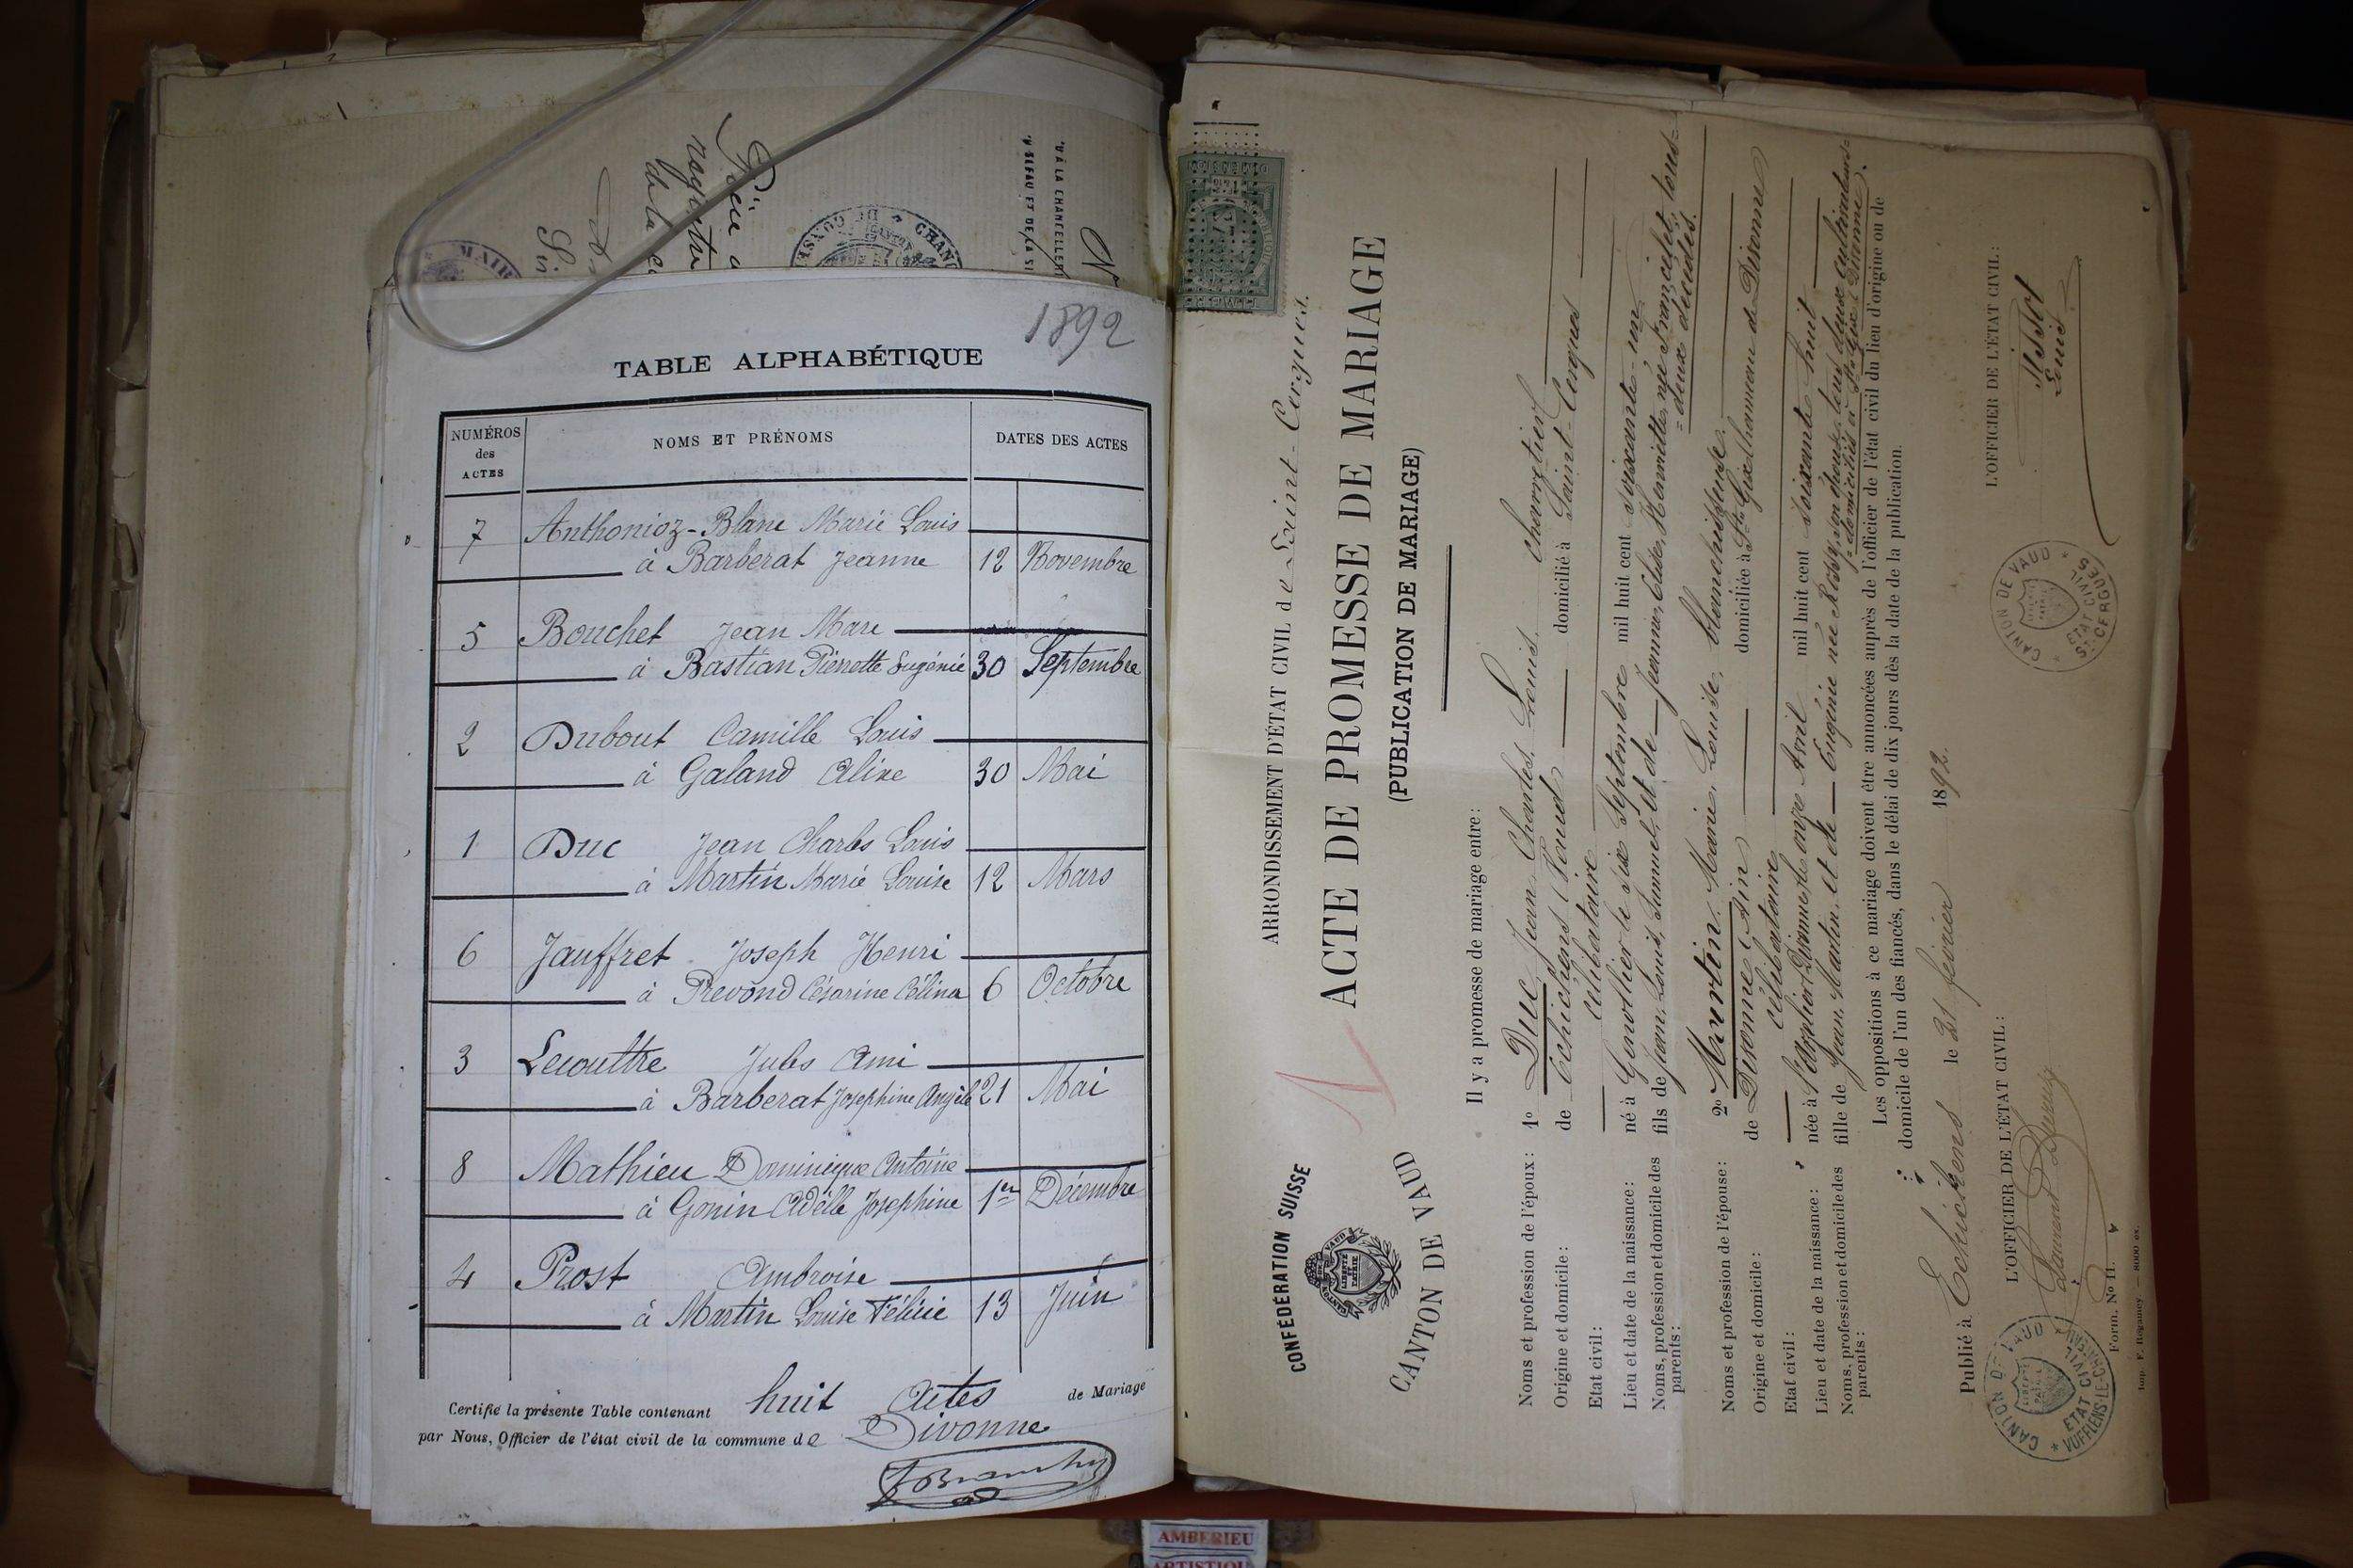 1892
TABLE ALPHABÉTIQUE
NUMÉROS des ACTES
NOMS ET PRÉNOMS
DATES DES ACTES
7 Anthonioz-Blanc Marie Louis
à Barberat Jeanne 12 Novembre
5 Bouchet Jean Marc
à Bastian Pierrette Eugénie 30 Septembre
2 Dubout Camille Louis
à Galand Aline 30 Mai
1 Duc Jean Charles Louis
à Martin Marie Louise 12 Mars
6 Jauffret Joseph Henri
à Prevond Césarine Célina 6 Octobre
3 Lecoultre Jules Ami
à Barberat Josephine Angèle 21 Mai
8 Mathieu Dominique Antoine
à Gonin Adèle Josephine 1er Décembre
4 Prost Ambroise
à Martin Louise Félicie 13 Juin
Certifié la présente Table contenant huit Actes de Mariage
par Nous, Officier de l'état civil de la commune de Divonne
CONFÉDÉRATION SUISSE
CANTON DE VAUD
LIBERTÉ ET PATRIE
1
ARRONDISSEMENT D'ÉTAT CIVIL de Saint-Cergues.
ACTE DE PROMESSE DE MARIAGE
(PUBLICATION DE MARIAGE)
Il y a promesse de mariage entre :
Noms et profession de l'époux : 1o Duc, Jean Charles Louis, charretier
Origine et domicile : de Echichens (Vaud) domicilié à Saint-Cergues
Etat civil : célibataire
Lieu et date de la naissance : né à Genollier le six Septembre mil huit cent soixante-un
Noms, profession et domicile des parents : fils de Jean, Louis, Summel, et de Jeanne, Henriette, née Françelet, tous =
= deux décédés.
Noms et profession de l'épouse : 2o Martin, Marie, Louise, blanchisseuse.
Origine et domicile : de Divonne (Ain) domiciliée à St Gix, hameau de Divonne
Etat civil : célibataire
Lieu et date de la naissance : née à Divonne le onze Avril mil huit cent soixante huit
Noms, profession et domicile des parents : fille de Jean, Martin, et de Eugénie née Rossy, son épouse, tous deux cultivateurs =
= domiciliés à Divonne.
Les oppositions à ce mariage doivent être annoncées auprès de l'officier de l'état civil du lieu d'origine ou de
domicile de l'un des fiancés, dans le délai de dix jours dès la date de la publication.
Publié à Echichens le 21 février 1892.
L'OFFICIER DE L'ÉTAT CIVIL :
L'OFFICIER DE L'ÉTAT CIVIL :
Laurent Dumig
Louis
CANTON DE VAUD * ETAT CIVIL * VUFFLENS-LE-CHATEAU
CANTON DE VAUD * ETAT CIVIL * ST CERGUES
Form. No 11.
Imp. F. Regamey. — 8000 ex.
AMBERIEU